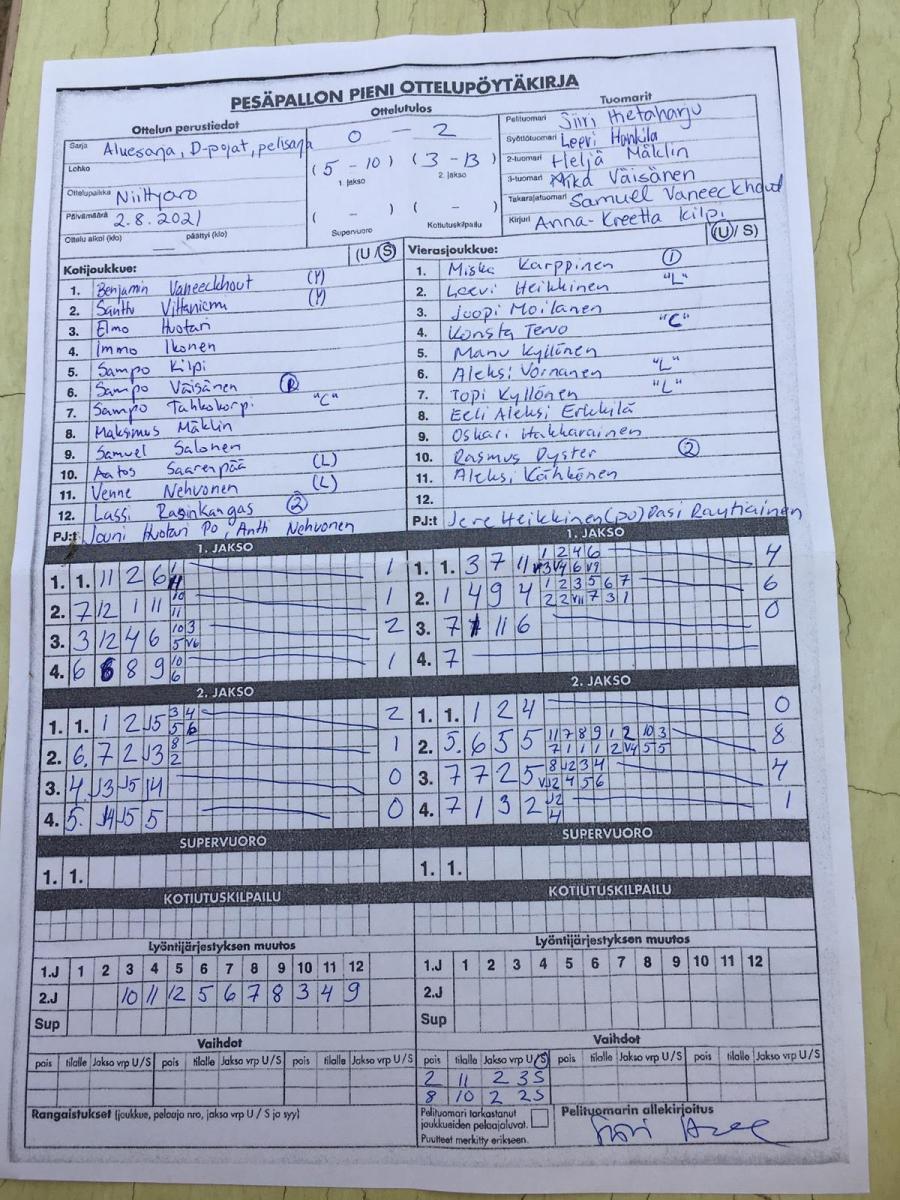 PESÄPALLON PIENI OTTELUPÖYTÄKIRJA
Ottelun perustiedot
Sarja Aluesarja, D-pojat, pelisarja
Lohko
Ottelupaikka Niittyaro
Päivämäärä 2.8.2021
Ottelu alkoi (klo) päättyi (klo)
Ottelutulos
0 - 2
(5 - 10) (3 - 13)
1. jakso 2. jakso
( - ) ( - )
Supervuoro Kotiutuskilpailu
Tuomarit
Pelituomari Siiri Hietaharju
Syöttötuomari Leevi Honkila
2-tuomari Heljä Mäklin
3-tuomari Aika Väisänen
Takarajatuomari Samuel Vaneeckhout
Kirjuri Anna-Kreetta Kilpi
Kotijoukkue: (U/S)
1. Benjamin Vaneeckhout (Y)
2. Santtu Viitaniemi (Y)
3. Elmo Huotari
4. Immo Ikonen
5. Sampo Kilpi
6. Sampo Väisänen
7. Sampo Tahkokorpi "C"
8. Maksimus Mäklin
9. Samuel Salonen
10. Aatos Saarenpää (L)
11. Venne Nehvonen (L)
12. Lassi Rasinkangas 2
PJ:t Jouni Huotari PO, Antti Nehvonen
Vierasjoukkue: (U/S)
1. Miska Karppinen 1
2. Leevi Heikkinen "L"
3. Juopi Moilanen
4. Konsta Tervo "C"
5. Manu Kyllönen
6. Aleksi Voinanen "L"
7. Topi Kyllönen "L"
8. Eeli Aleksi Erkkilä
9. Oskari Hakkarainen
10. Rasmus Oyster 2
11. Aleksi Kähkönen
12.
PJ:t Jere Heikkinen (PO) Pasi Rautiainen
1. JAKSO
1. 1. 11 2 6 1
2. 7 12 1 11 10 11 1
3. 3 12 4 6 10 3 5 V6 2
4. 6 8 8 9 10 6 1
1. JAKSO
1. 1. 3 7 11 1 2 4 6 V3 V4 6 V9 4
2. 1 4 9 4 1 2 3 5 6 7 2 2 V11 7 3 1 6
3. 7 11 6 0
4. 7
2. JAKSO
1. 1. 1 2 J5 3 4 5 6 2
2. 6. 7 2 J3 8 2 1
3. 4 J3 J5 J4 0
4. 5. J4 J5 5 0
2. JAKSO
1. 1. 1 2 4 0
2. 5. 6 5 5 11 7 8 9 1 2 10 3 7 1 1 1 2 V4 5 5 8
3. 7 7 2 5 8 J2 3 4 VJ2 4 5 6 4
4. 7 1 3 2 J2 4 1
SUPERVUORO
1. 1.
SUPERVUORO
1. 1.
KOTIUTUSKILPAILU
KOTIUTUSKILPAILU
Lyöntijärjestyksen muutos
1.J 1 2 3 4 5 6 7 8 9 10 11 12
2.J 10 11 12 5 6 7 8 3 4 9
Sup
Lyöntijärjestyksen muutos
1.J 1 2 3 4 5 6 7 8 9 10 11 12
2.J
Sup
Vaihdot
pois tilalle Jakso vrp U/S pois tilalle Jakso vrp U/S pois tilalle Jakso vrp U/S
Vaihdot
pois tilalle Jakso vrp U/S pois tilalle Jakso vrp U/S pois tilalle Jakso vrp U/S
2 11 2 3S
8 10 2 2S
Rangaistukset (joukkue, pelaaja nro, jakso vrp U / S ja syy)
Pelituomari tarkastanut
joukkueiden pelaajaluvat.
Puutteet merkitty erikseen.
Pelituomarin allekirjoitus